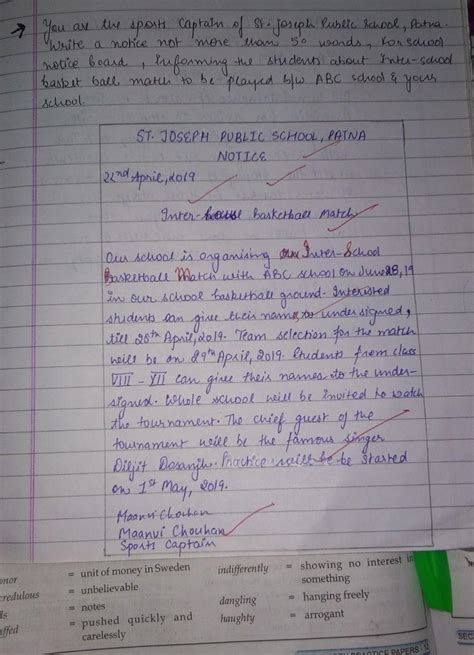 You are the sports Captain of St. Joseph Public School, Patna.
Write a notice not more than 50 words, for school
notice board, Informing the students about Inter-school
basket ball match to be played b/w ABC school & your
school.
ST. JOSEPH PUBLIC SCHOOL, PATNA
NOTICE
22nd April, 2019
Inter- Basketball Match
Our school is organising Inter-School
Basketball Match with ABC school on June 28, 19
in our school basketball ground. Interested
students can give their names to undersigned,
till 26th April, 2019. Team selection for the match
will be on 29th April, 2019. Students from class
VIII - XII can give their names to the under-
signed. Whole school will be invited to watch
the tournament. The chief guest of the
tournament will be the famous singer
Diljit Dosanjh. Practice will be be started
on 1st May, 2019.
Maanvi Chouhan
Maanvi Chouhan
Sports Captain
onor = unit of money in Sweden indifferently = showing no interest in
redulous = unbelievable something
ls = notes dangling = hanging freely
uffed = pushed quickly and haughty = arrogant
carelessly
PRACTICE PAPERS
SEC